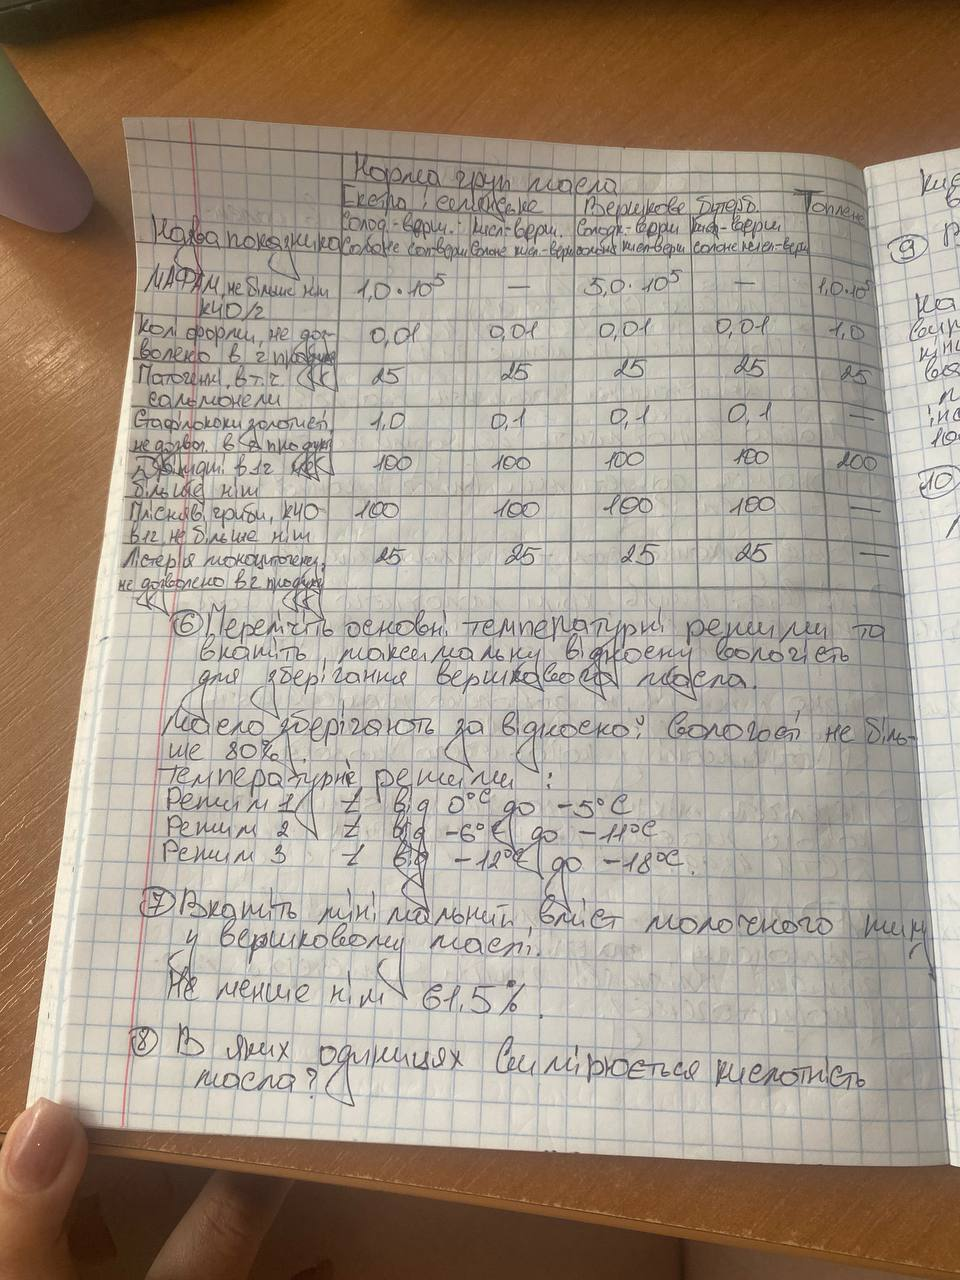 Норма груп масла
Екстра і селянське Вершкове Бутерб. Топлене
Солод-верш. Кисл-верш. Солодк-верш Кисл-верш
Назва показника
Солоне сол-верш Солоне кисл-верш солоне кисл-верш солоне кисл-верш
МАФАМ, не більше ніж 1,0·10⁵ — 5,0·10⁵ — 1,0·10⁵
КУО/г
Колі форми, не доз- 0,01 0,01 0,01 0,01 1,0
волено в г продукту
Патогенні, в т.ч. 25 25 25 25 25
сальмонели
Стафілококи золотисті, 1,0 0,1 0,1 0,1 —
не дозвол. в г продукт
Дріжджі в 1г 100 100 100 100 200
більше ніж
Плісняві гриби, КУО 100 100 100 100 —
в 1г, не більше ніж
Лістерія моноцитогенез, 25 25 25 25 —
не дозволено в г продукту
6 Перелічіть основні температурні режими та
вкажіть, максимальну відносну вологість
для зберігання вершкового масла.
Масло зберігають за відносної вологості не біль-
ше 80%.
Температурне режими :
Режим 1 t від 0°С до -5°С
Режим 2 t від -6°С до -11°С
Режим 3 t від -12°С до -18°С.
7 Вкажіть мінімальний вміст молочного жиру
у вершковому маслі.
Не менше ніж 61,5%.
8 В яких одиницях вимірюється кислотність
масла?
9
10